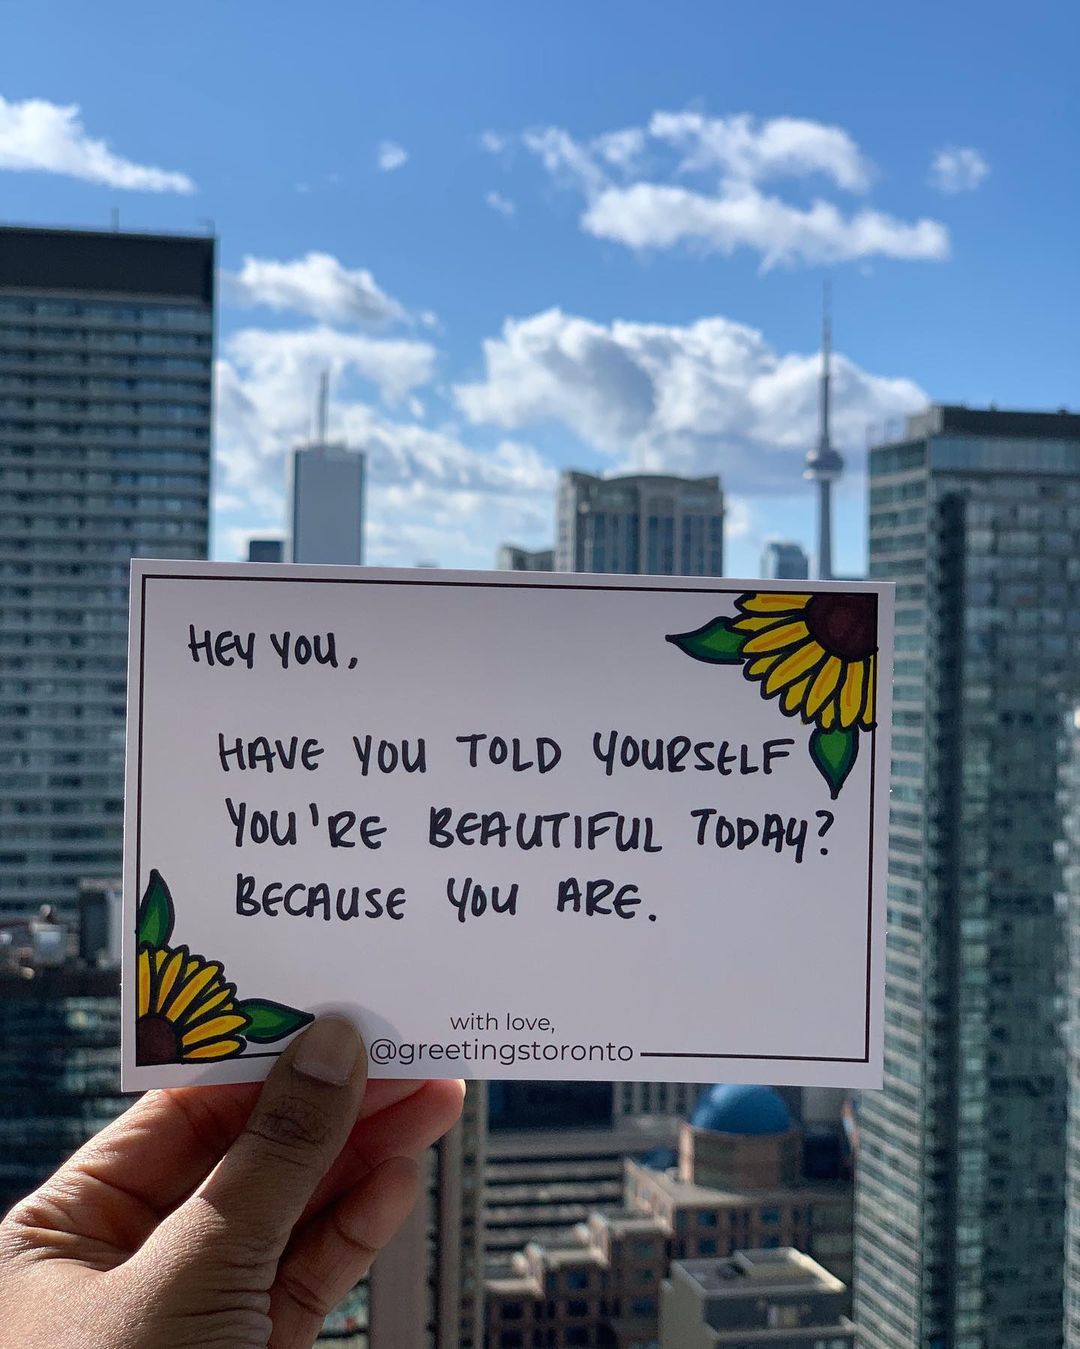 HEY YOU,
HAVE YOU TOLD YOURSELF
YOU'RE BEAUTIFUL TODAY?
BECAUSE YOU ARE.
with love,
@greetingstoronto